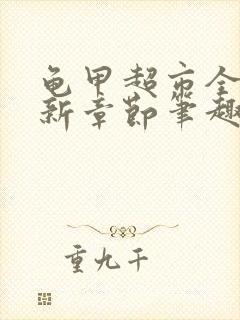 龟甲超市全
新章節筆趣
重九千